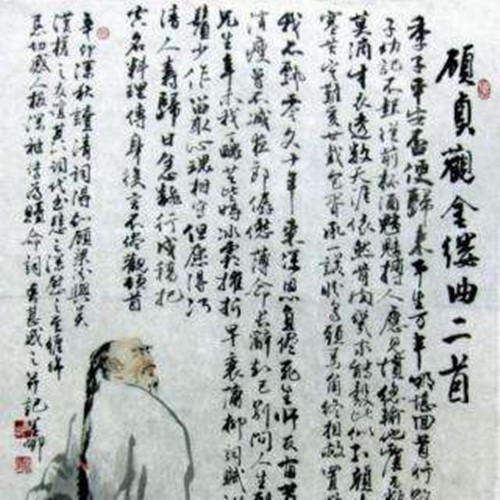 頋貞觀金缕曲二首
季子平安否便歸来平生万事那堪回首行路
子幼記不起從前杯酒魑魅搏人應見慣總輸他覆雨
莫滴牛衣透數天涯依然骨肉幾家能彀比似紅顏
寒苦寒難受廿載包胥承一諾盼烏頭馬角終相救置
我亦飄零久十年来深恩負盡死生師友宿昔
消瘦曾不減夜郎僝僽薄命長辭知己別問人生到
兄生辛未我丁丑共些時冰霜摧折早衰蒲柳詞賦從
鬢少作留取心魂相守但願得河
清人壽歸日急翻行戍稿把
空名料理傳身後言不盡觀頓首
辛卯深秋讀清詞得知顧梁汾與吴
漢槎之友誼其詞代書悲之深慰之至纏綿
感人极深